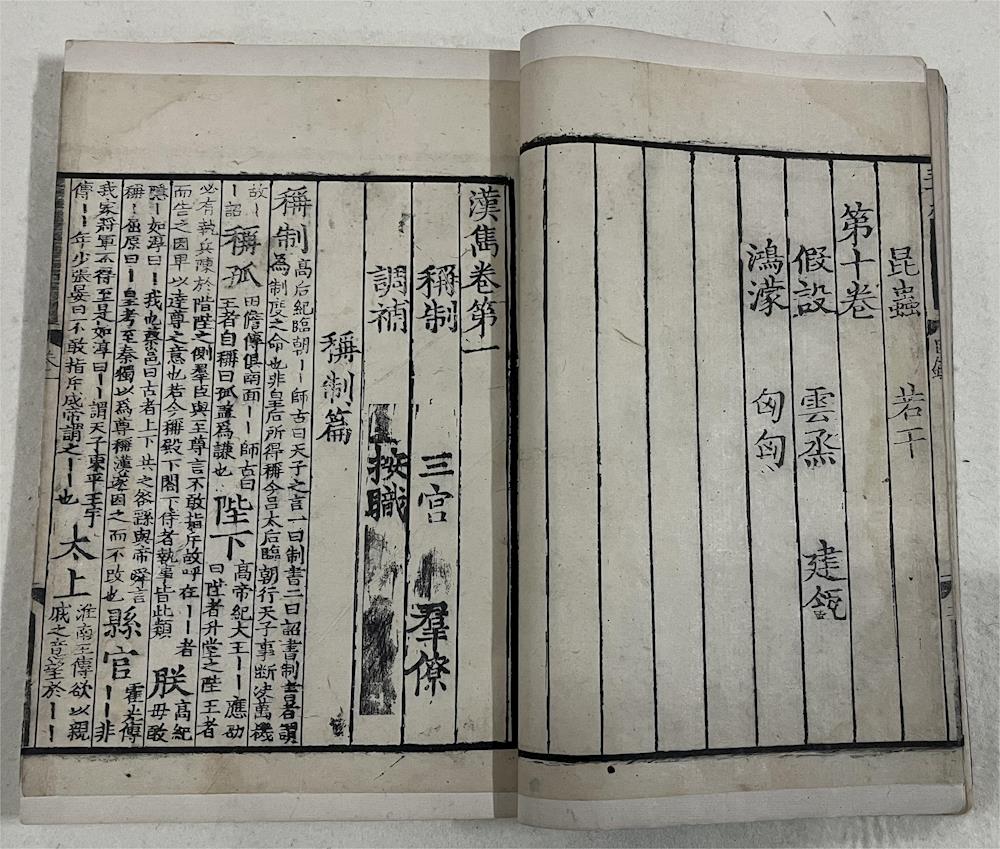 昆蟲 若干
第十卷
假設 雲烝 建瓴
鴻濛 匈匈
目錄
漢雋卷第一
稱制 三官 羣僚
調補 按職
稱制篇
稱制 高后紀臨朝ーー師古曰天子之言一曰制書二曰詔書制書者謂
為制度之命也非皇后所得稱今呂太后臨朝行天子事斷决萬機
故ー
ー詔 稱孤 田儋傳俱南面ーー師古曰
王者自稱曰孤蓋為謙也 陛下 高帝紀大王ーー應劭
曰陛者升堂之陛王者
必有執兵陳於階陛之側羣臣與至尊言不敢指斥故呼在ーー者
而告之因卑以達尊之意也若今稱殿下閣下侍者執事皆此類 朕 高紀
毋敢
隱ー如淳曰ー我也蔡邕曰古者上下共之咎繇與帝舜言
稱ー屈原曰ー皇考至秦獨以為尊稱漢遂因之而不改也 縣官 霍光傳
ーー非
我家將軍不得至是如淳曰ーー謂天子東平王宇
傳ーー年少張晏曰不敢指斥成帝謂之ーー也 太上 淮南王傳欲以親
戚之意望於ーー
卷一